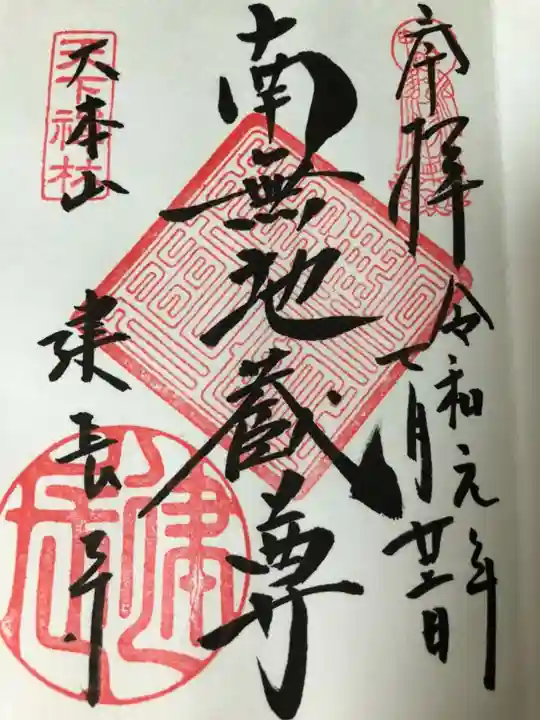 奉拝
令和元年
七月廿二日
南無地蔵尊
天下禅林
大本山
建長寺
建長